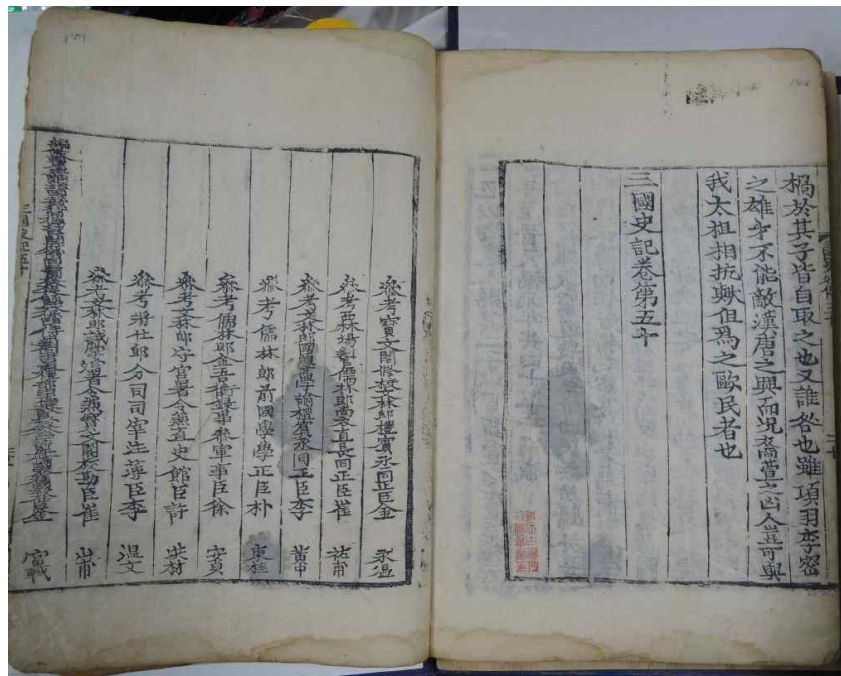 禍於其子皆自取之也又誰咎也雖項羽李密
之雄才不能敵漢唐之興而況裔萱之凶人豈可與
我太祖相抗歟但爲之歐民者也
三國史記卷第五十
叅考寶文閣修校文林郎禮賓丞同正臣金 永温
叅考西林場判官儒林郎尚衣直長同正臣崔 祐甫
叅考文林郎國學學諭禮賓丞同正臣李 黃中
叅考儒林郎前國學學正臣朴 東柱
叅考儒林郎金吾衛錄事叅軍事臣徐 安貞
叅考文林郎守宮署令兼直史館臣許 洪材
叅考將仕郎分司司宰注簿臣李 温文
叅考文林郎試掌冶署令兼寶文閣校勘臣崔 山甫
臣金 富軾
三國史記五十